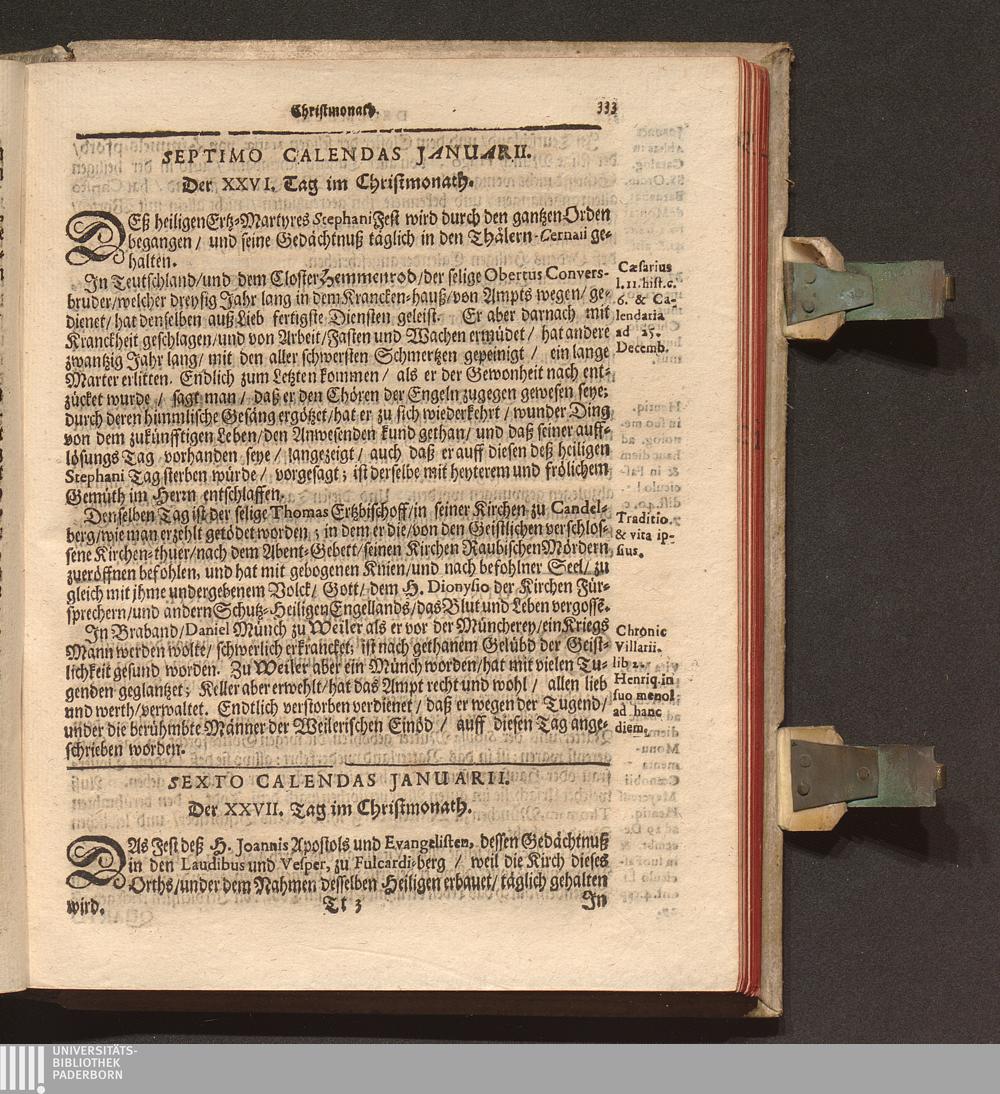 Christmonath.
333
SEPTIMO CALENDAS JANUARII.
Der XXVI. Tag im Christmonath.
DEß heiligen Ertz-Martyres Stephani Fest wird durch den gantzen Orden
begangen / und seine Gedächtnuß täglich in den Thålern-Cernaii ge-
halten.
In Teutschland/und dem Closter Hemmenrod/der selige Obertus Convers-
bruder/welcher dreysig Jahr lang in dem Krancken-hauß/von Ampts wegen/ ge-
dienet/ hat denselben auß Lieb fertigste Diensten geleist. Er aber darnach mit
Kranckheit geschlagen/und von Arbeit/Fasten und Wachen ermüdet / hat andere
zwantzig Jahr lang/ mit den aller schwersten Schmertzen gepeinigt / ein lange
Marter erlitten. Endlich zum Letzten kommen / als er der Gewonheit nach ent-
zücket wurde / sagt man / daß er den Chören der Engeln zugegen gewesen seye;
durch deren himmlische Gesäng ergötzet/hat er zu sich wiederkehrt / wunder Ding
von dem zukünfftigen Leben/den Anwesenden kund gethan/ und daß seiner auff-
lösungs Tag vorhanden seye / angezeigt / auch daß er auff diesen deß heiligen
Stephani Tag sterben würde / vorgesagt; ist derselbe mit heyterem und frölichem
Gemüth im Herrn entschlaffen.
Denselben Tag ist der selige Thomas Ertzbischoff/in seiner Kirchen zu Candel-
berg/wie man erzehlt getödet worden ; in dem er die/von den Geistlichen verschlos-
sene Kirchen-thuer/nach dem Abent-Gebett/seinen Kirchen Raubischen Mördern
zueröffnen befohlen, und hat mit gebogenen Knien/und nach befohlner Seel/ zu
gleich mit jhme undergebenem Volck/ Gott/ dem H. Dionysio der Kirchen Für-
sprechern/und andern Schutz-Heiligen Engellands/das Blut und Leben vergosse.
In Braband/Daniel Münch zu Weiler als er vor der Müncherey/ein Kriegs
Mann werden wolte/ schwerlich erkrancket; ist nach gethanem Gelübd der Geist-
lichkeit gesund worden. Zu Weiler aber ein Münch worden/hat mit vielen Tu-
genden geglantzet; Keller aber erwehlt/hat das Ampt recht und wohl / allen lieb
und werth/verwaltet. Endtlich verstorben verdienet / daß er wegen der Tugend/
under die berühmbte Männer der Weilerischen Einöd / auff diesen Tag ange-
schrieben worden.
Cæsarius
l.11.hist.c.
6. & Ca-
lendaria
ad 25.
Decemb.
Traditio.
& vita ip-
sius.
Chronic
Villarii.
lib 2.
Henriq. in
suo menol
ad hanc
diem.
SEXTO CALENDAS JANUARII.
Der XXVII. Tag im Christmonath.
DAs Fest deß H. Joannis Apostols und Evangelisten, dessen Gedächtnuß
in den Laudibus und Vesper, zu Fulcardi-berg / weil die Kirch dieses
Orths/under dem Nahmen desselben Heiligen erbauet/ täglich gehalten
wird.
Tt 3
In
UNIVERSITÄTS-
BIBLIOTHEK
PADERBORN